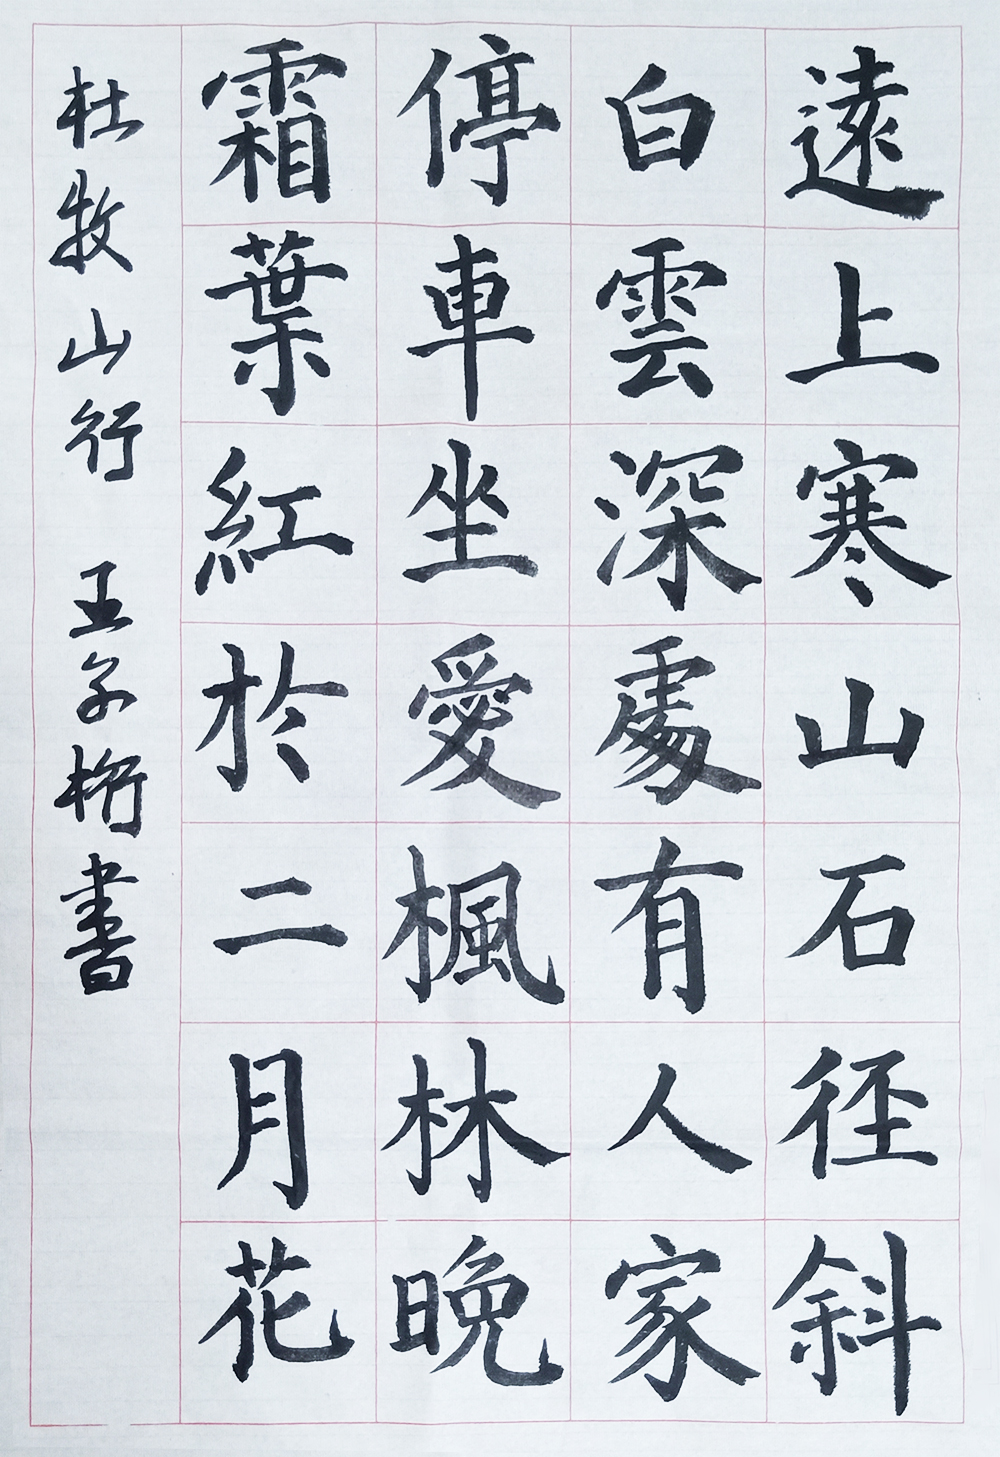 遠上寒山石径斜
白雲深處有人家
停車坐愛楓林晚
霜葉紅於二月花
杜牧山行 王子桁書